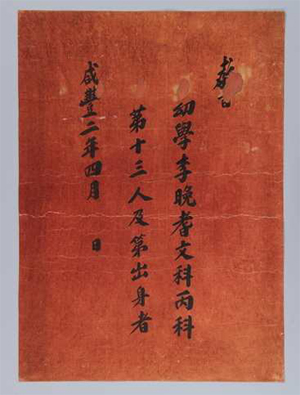 敎旨
幼學李晚耆文科丙科
第十三人及第出身者
咸豊二年四月 日